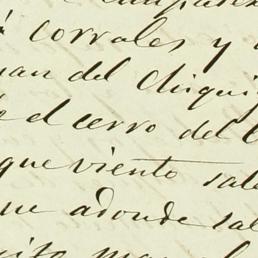 corrales y
del Chiqui
el cerro del
que viento sale
adonde sal